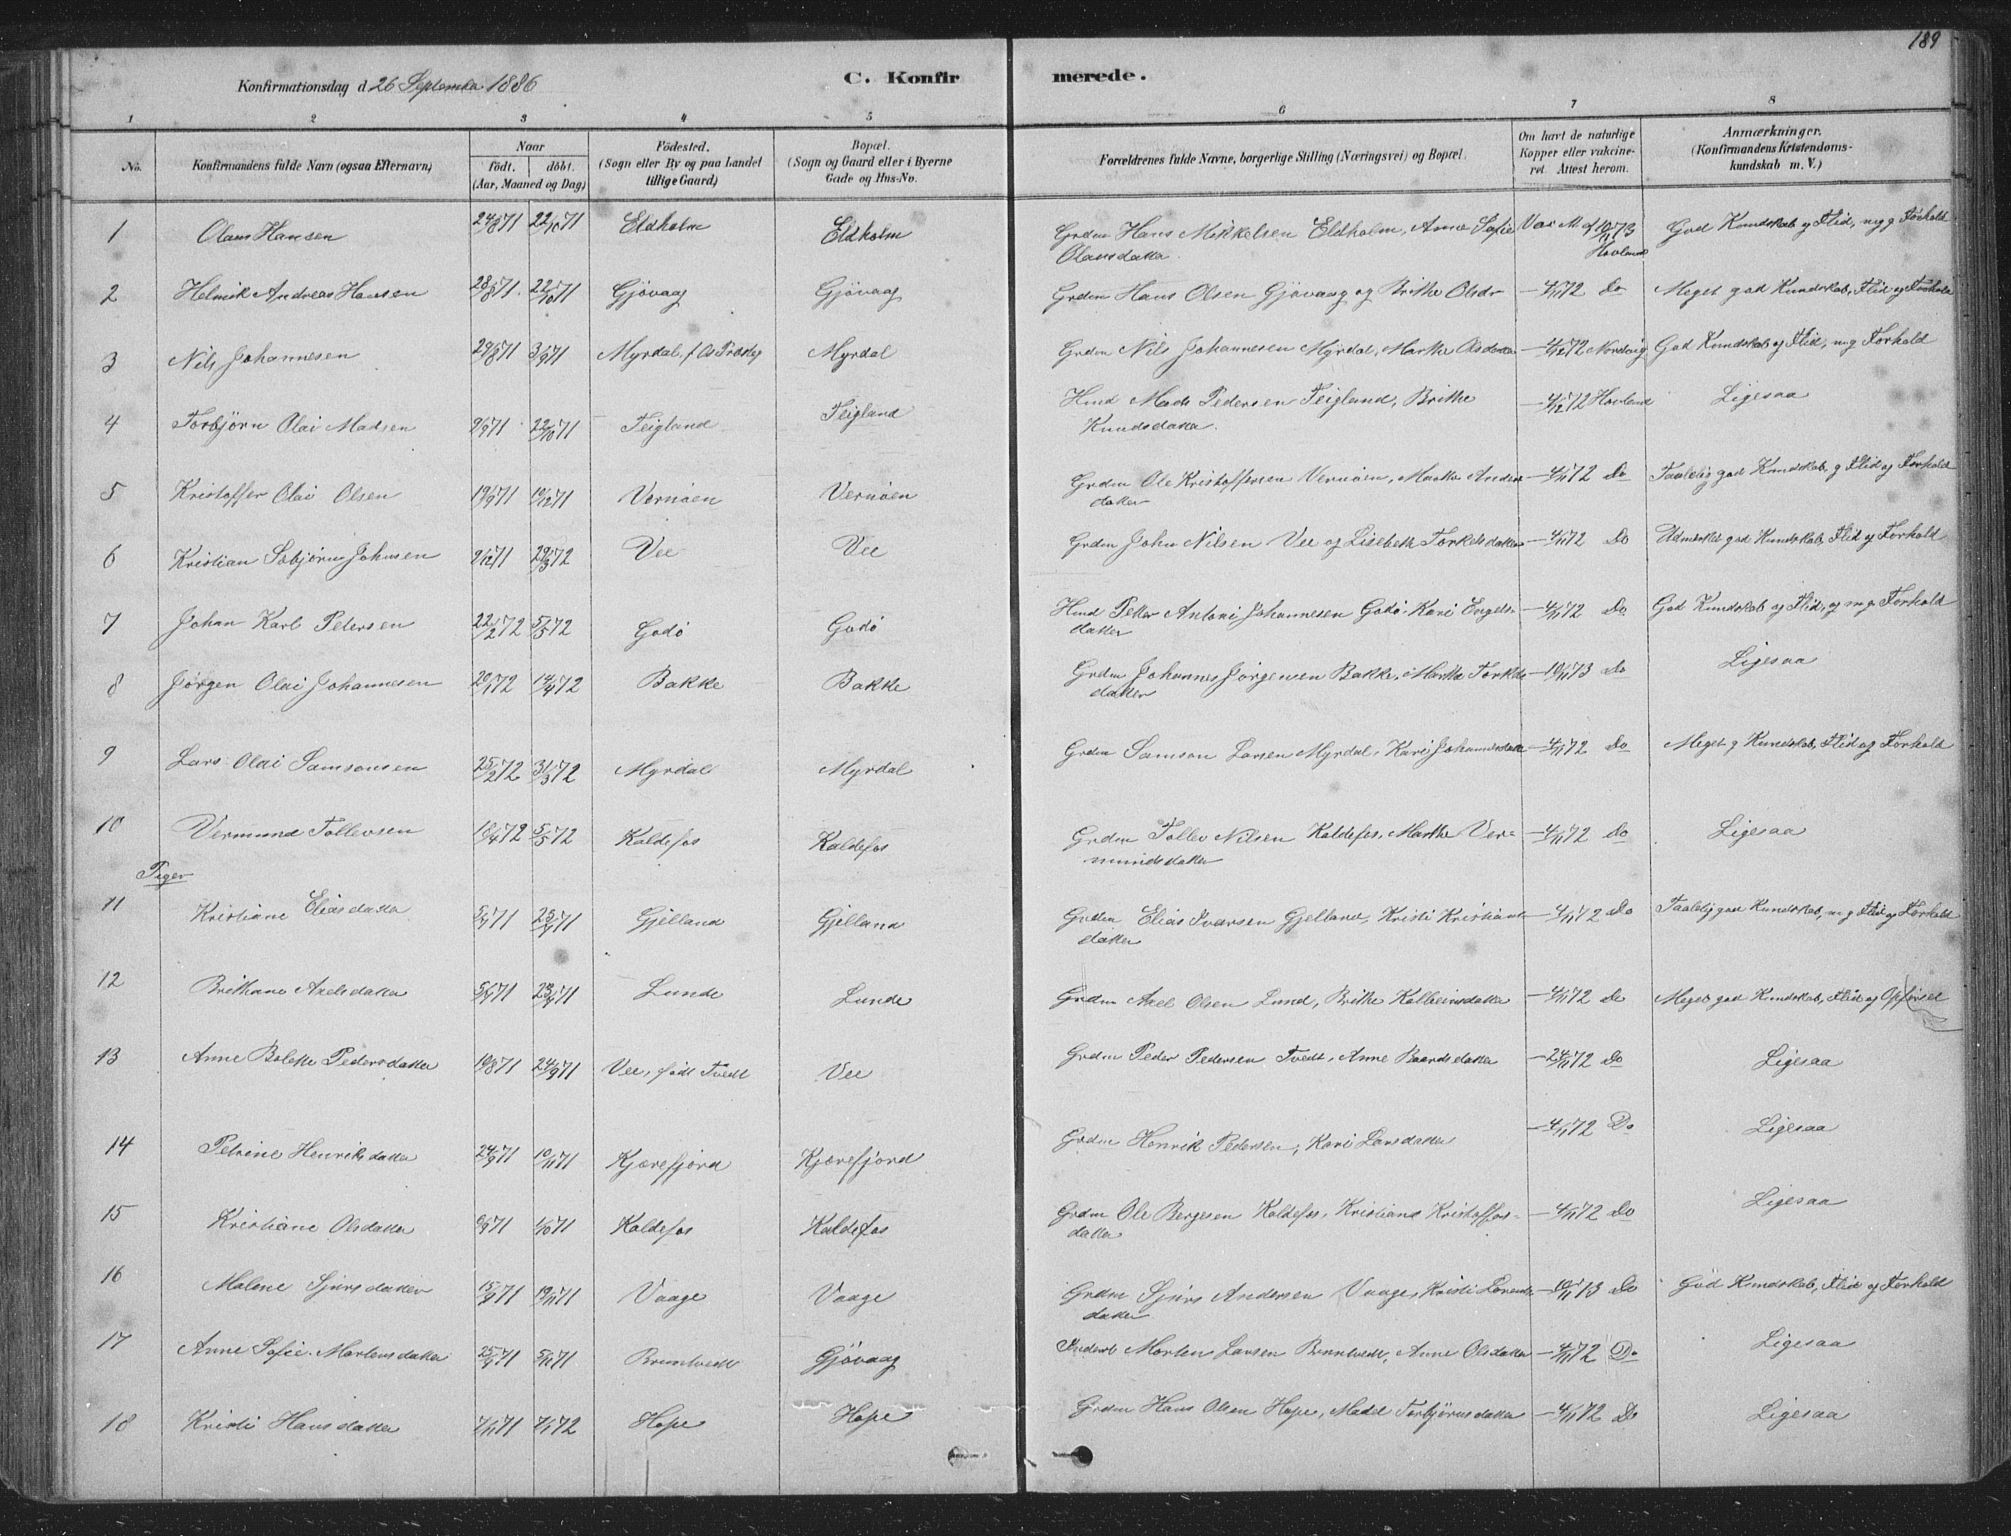 189
Konfirmationsdag d. 26 September 1886
C. Konfirmerede.
1 2 3 4 5 6 7 8
No. Konfirmandens fulde Navn (ogsaa Efternavn) Naar födt. döbt. (Aar, Maaned og Dag) Födested. (Sogn eller By og paa Landet tillige Gaard) Bopæl. (Sogn og Gaard eller i Byerne Gade og Hus-No. Forældrenes fulde Navne, borgerlige Stilling (Næringsvei) og Bopæl. Om havt de naturlige Kopper eller vakcineret. Attest herom. Anmærkninger. (Konfirmandens Kristendomskundskab m. V.)
1 Olaus Hansen 24/8 71 22/10 71 Eldholm Eldholm Grdm Hans Mikkelsen Eldholm, Anne Sofie Vac M af 10/11 73 God Kundskab og Flid, meg g Forhold
Olausdatter. Hovland
2 Helmik Andreas Hansen 28/8 71. 22/10 71 Gjövaag Gjövaag Grdm Hans Olsen Gjövaag og Brithe Olsdr — 4/11 72 Do Meget god Kundskab, Flid og Forhold
3 Nils Johannesen 29/8 71 3/9 71 Myrdal, f. Os Præstg Myrdal Grdm Nils Johannesen Myrdal, Marthe Olsdatter — 4/12 72 Nordvig God Kundskab og Flid, m g Forhold
4 Torbjörn Olai Madsen 9/9 71. 22/10 71 Teigland Teigland Husmd Mads Pedersen Teigland, Brithe — 4/12 72 Hovland Ligesaa
Knudsdatter.
5 Kristoffer Olai Olsen 19/9 71 10/12 71 Vernöen Vernöen Grdm Ole Kristoffersen Vernöen, Marthe Anders — 4/11 72 Do Taalelig god Kundskab, g Flid og Forhold
datter
6 Kristian Sebjörn Johnsen 2/12 71 29/3 72 Vee Vee Grdm John Nilsen Vee og Lisebeth Torkelsdatter — 4/11 72 Do Udmerket god Kundskab, Flid og Forhold
7 Johan Karl Petersen 22/2 72 5/5 72 Godö Godö Husmd Petter Antoni Johannesen Godö, Kari Engels- — 4/11 72 Do God Kundskab og Flid, og m g Forhold
datter
8 Jörgen Olai Johannesen 20/1 72 14/4 72 Bakke Bakke Grdm Johannes Jörgensen Bakke, Marthe Torkels — 10/11 73 Do Ligesaa
datter
9 Lars Olai Samsonsen 25/2 72 31/3 72 Myrdal Myrdal Grdm Samson Larsen Myrdal, Kari Johannesdatter — 4/11 72 Do Meget g Kundskab, Flid og Forhold
10 Vermund Tollevsen 18/4 72 5/5 72 Kaldefos Kaldefos Grdm Tollev Nilsen Kaldefos, Marthe Ver- — 4/11 72 Do Ligesaa
mundsdatter
Piger
11 Kristiane Eliasdatter 5/4 71 23/4 71 Gjelland Gjelland Grdm Elias Ivarsen Gjelland, Kristi Kristians — 4/11 72 Do Taalelig god Kundskab, m g Flid og Forhold
datter
12 Brithane Axelsdatter 5/4 71 23/4 71 Lunde Lunde Grdm Axel Olsen Lund, Brithe Kolbeinsdatter — 4/11 72 Do Meget god Kundskab, Flid og Opförsel
13 Anne Bolette Pedersdatter 19/8 71 24/9 71 Vee, födt Tvedt Vee Grdm Peder Pedersen Tvedt, Anne Baardsdatter — 24/11 72 Do Ligesaa
14 Petrine Henriksdatter 24/9 71 10/11 71 Kjærefjord Kjærefjord Grdm Henrik Pedersen, Kari Larsdatter — 4/11 72 Do Ligesaa
15 Kristiane Olsdatter 6/9 71 1/10 71 Kaldefos Kaldefos Grdm Ole Borgesen Kaldefos, Kristiane Kristoffers- — 4/11 72 Do Ligesaa
datter
16 Malene Sjursdatter 15/9 71 19/11 71 Vaage Vaage Grdm Sjurs Andersen Vaage, Kristi Larsens — 10/11 73 Do God Kundskab, Flid og Forhold
datter
17 Anne Sofie Mortensdatter 25/9 71 5/11 71 Bruntvedt Gjövaag Inderst Morten Larsen Brunntvedt, Anne Olsdatter — 4/11 72 Do Ligesaa
18 Kristi Hansdatter 7/11 71 7/1 72 Hope Hope Grdm Hans Olsen Hope, Madel Torbjörnsdatter — 4/11 72 Do Ligesaa